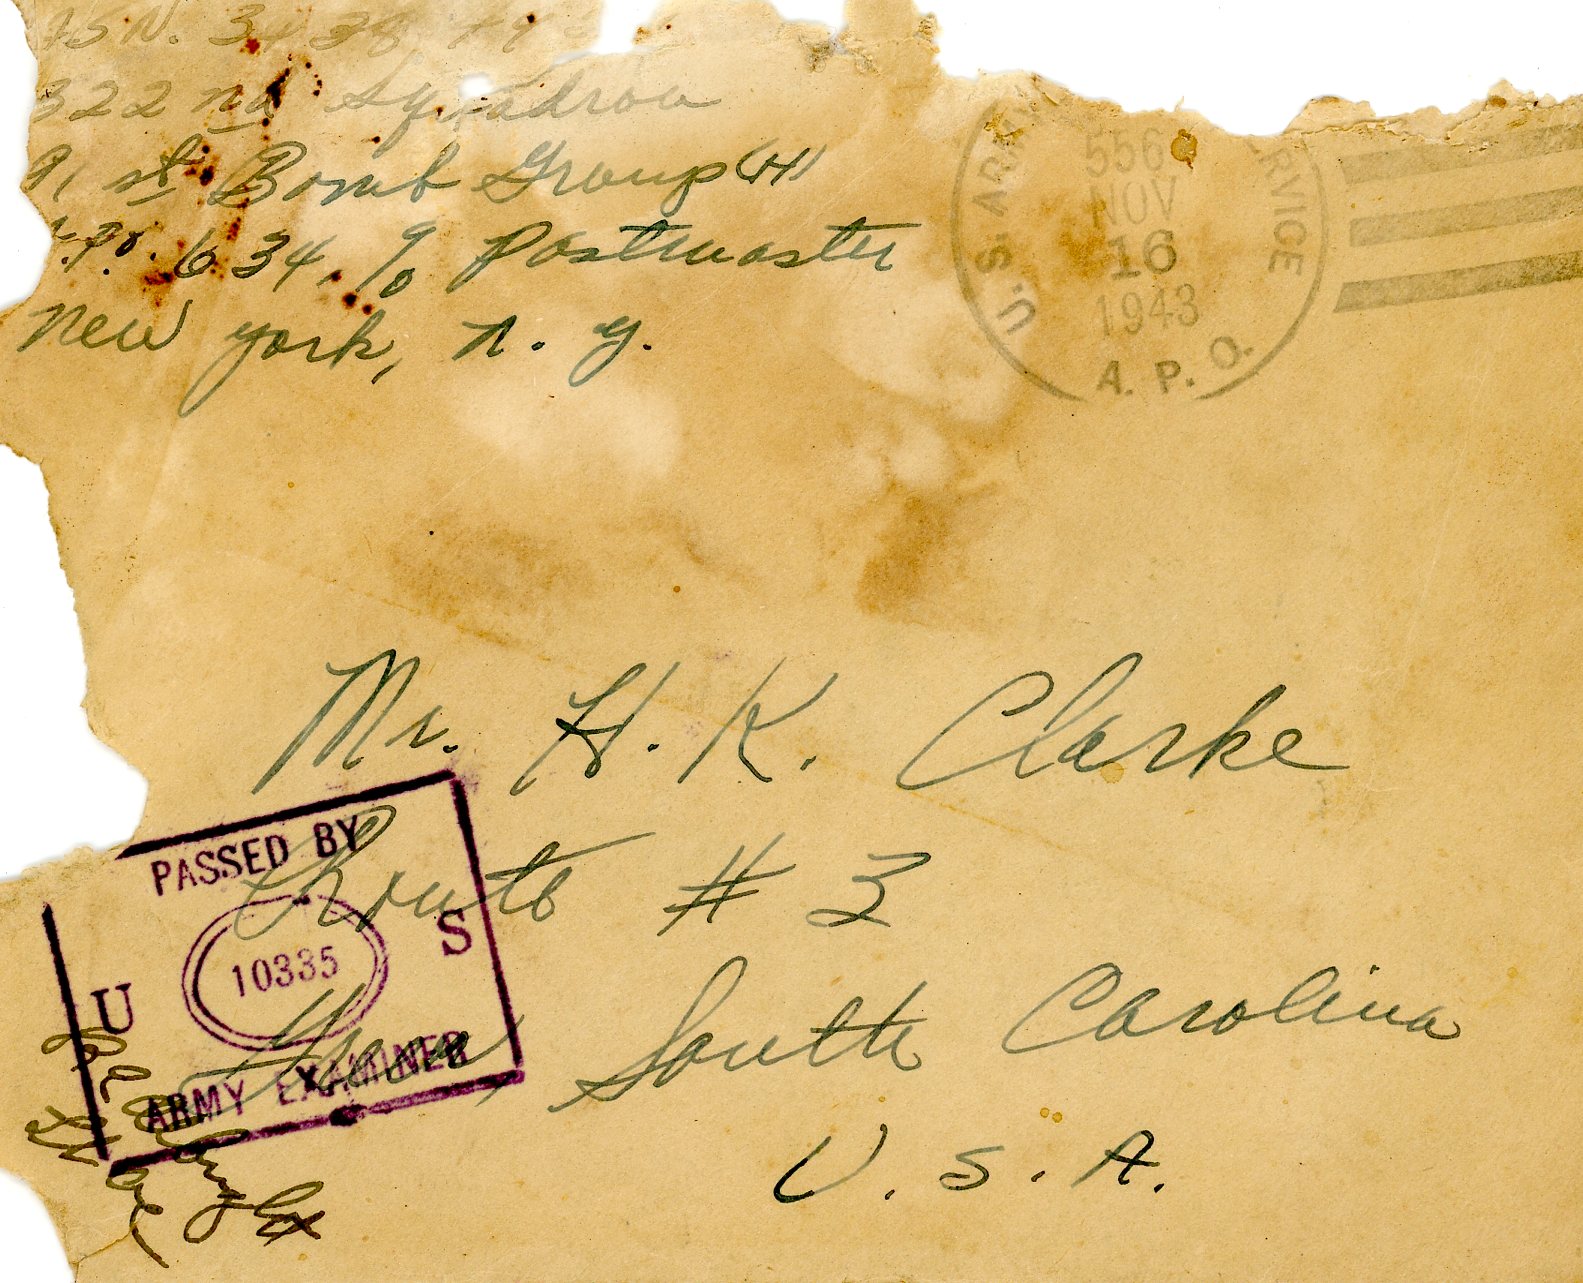 ASN. 3438
322nd Squadron
91st Bomb Group (H)
A.P.O. 634, % Postmaster
New York, N. Y.
U.S. ARMY
RVICE
556
NOV
16
1943
A. P. O.
Mr. H. K. Clarke
Route # 3
Greer, South Carolina
U. S. A.
PASSED BY
U S
10335
ARMY EXAMINER